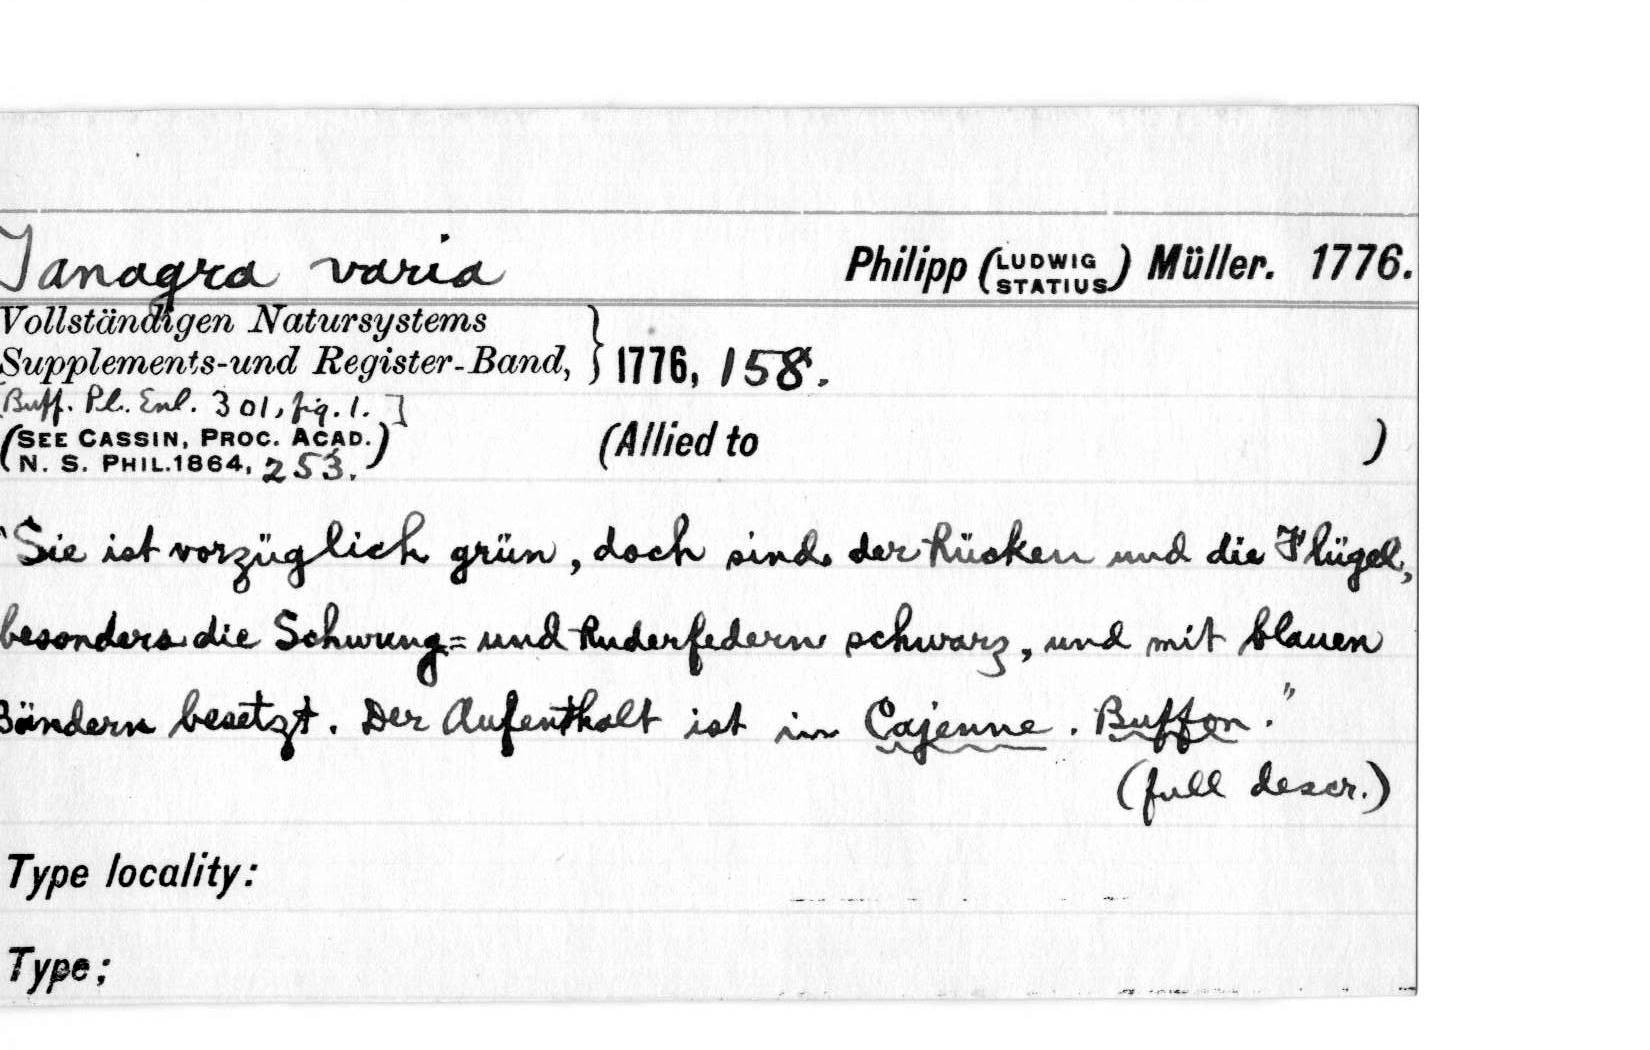 Tanagra varia Philipp (LUDWIG STATIUS) Müller. 1776.
Vollständigen Natursystems
Supplements-und Register-Band, } 1776, 158.
[Buff. Pl. Enl. 301, fig. 1.]
(SEE CASSIN, PROC. ACAD. (Allied to )
N. S. PHIL. 1864, 253.)
"Sie ist vorzüglich grün, doch sind der Rücken und die Flügel,
besonders die Schwung= und Ruderfedern schwarz, und mit blauen
Bändern besetzt. Der Aufenthalt ist in Cajenne. Buffon."
(full descr.)
Type locality:
Type;